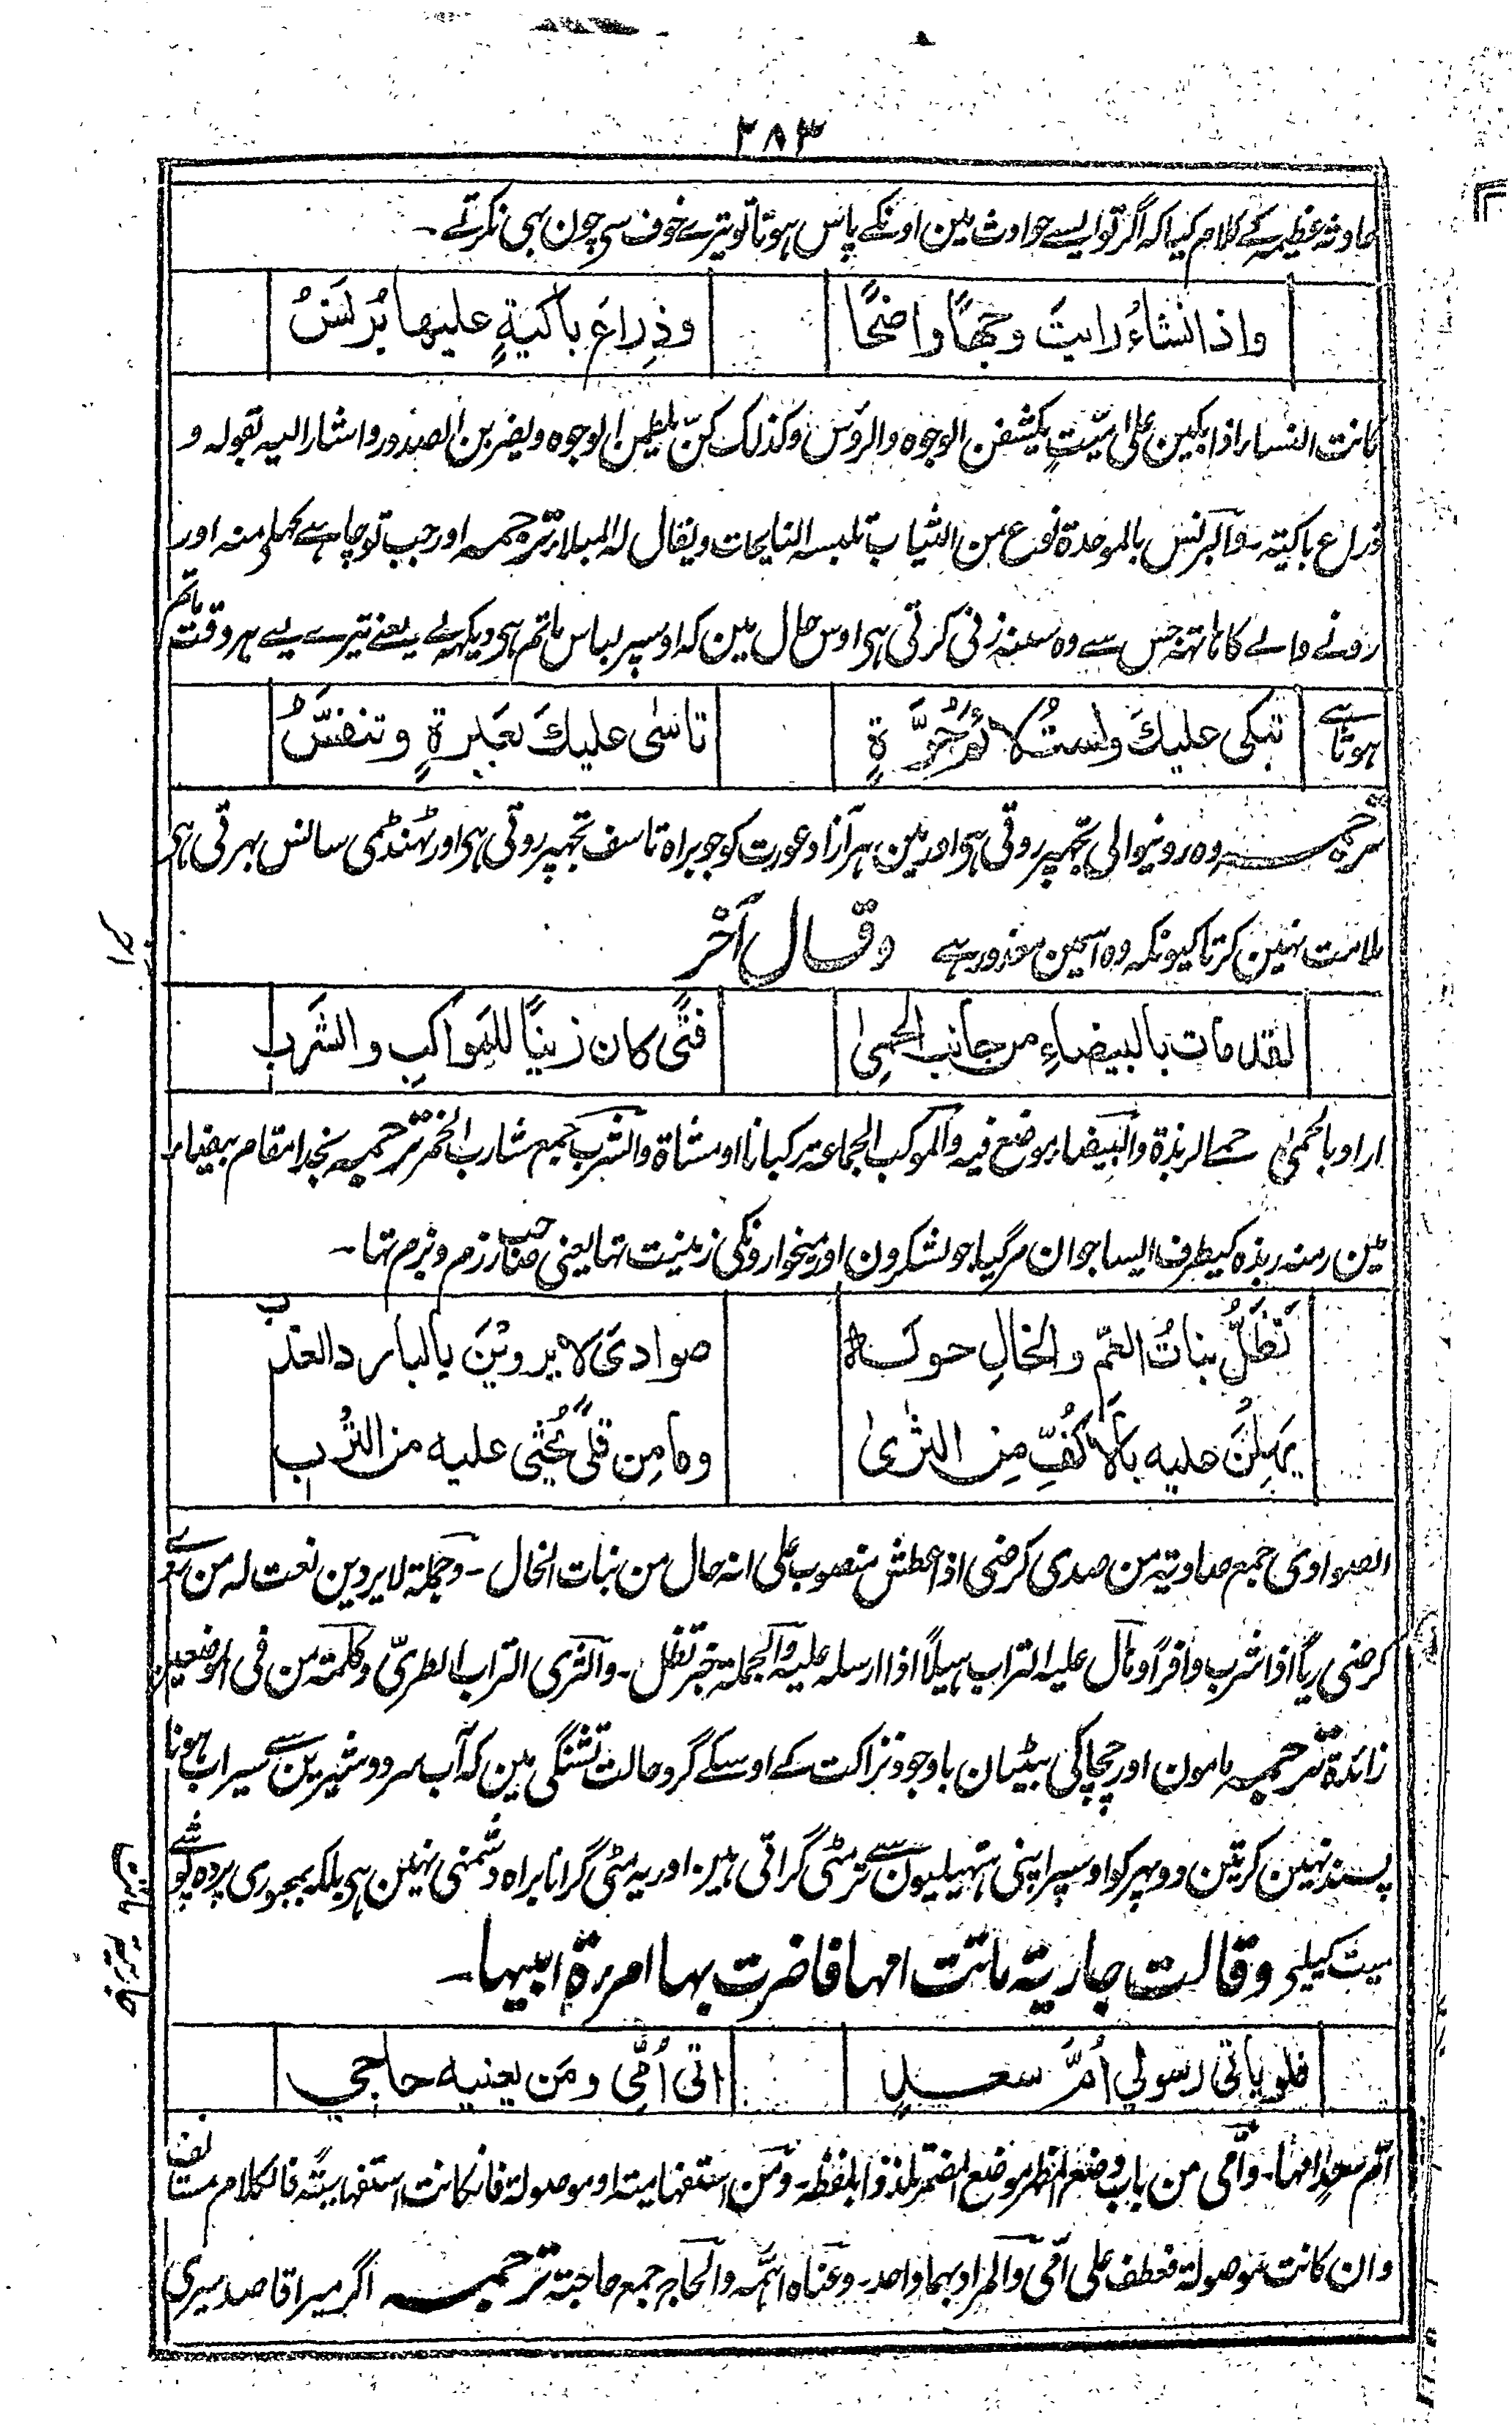 ٢٨٣
حادثہ عظیمہ کے کلام کیا کہ اگر تو ایسے حوادث مین اونکے پاس ہوتا تو تیرے خوف سی چون بہی نکرتے۔
واذا تشاءُ رايتَ وجهًا واضحًا وذِراعَ باكيةٍ عليها بُرنَسُ
كانت النساء اذا بكين على ميّتٍ يكشفن الوجوه والروس وكذلك كنّ يلطمن الوجوه ويضربن الصدور واشار اليه بقوله و
ذراع باكية۔ والبرنس بالموحدة نوع من الثياب تلبسه النايحات ويقال له السلاب ترجمہ اور جب تو چاہے کہلی منہ اور
رونے والے کا ہاتہہ جس سے وہ سینہ زنی کرتی ہی اوس حال مین کہ اوسپر لباس ماتم ہی دیکہہ لے یعنے تیرے لیے ہر وقت ماتم
ہوتا ہے
تبكى عليكَ ولستُ لائمَ حُرَّةٍ تاسٰى عليكَ بعَبرةٍ وتنفّسُ
ترجمہ وہ رونیوالی تجہپر روتی ہی اور مین ہر آزاد عورت کو جو براہ تاسف تجہپر روتی ہی اور ٹہنڈی سانس بہرتی ہی
ملامت نہین کرتا کیونکہ وہ اسمین معذور ہے وقال آخر
لقد مات بالبيضاءِ من جانب الحمىٰ فتًى كان زينًا للمَواكبِ والشَرب
اراد بالحمىٰ حمى الربذة والبيضاء موضع فيه والموكب الجماعة ركبانا او مشاة والشرب جمع شارب الخمر ترجمہ بخدا مقام بیضاء
مین رمنہ ربذہ کیطرف ایسا جوان مرگیا جو لشکرون اور میخوارونکی زینیت تہا یعنی صاحب رزم و بزم تہا۔
تَظَلُّ بناتُ العمّ والخالِ حوله صوادىَ لا يروَيْنَ بالبارد العذب
يَهِلنَ عليه بالاكُفِّ مِن الثرٰى وما مِن قلًى يُحثٰى عليه من التُرب
الصوادى جمع صادية من صدى كرضى اذا عطش منصوب على انه حال من بنات الخال۔ وجملة لا يروين نعت له من روى
كرضى ريًّا اذا شرب وافرًا وهال عليه التراب هيلًا اذا ارسله عليه والجملة خبر تظل۔ والثرى التراب الطرىّ وكلمة من فى الموضعين
زائدة ترجمہ مامون اور چچا کی بیٹیان باوجود نزاکت کے اوسکے گرد حالت تشنگی مین کہ آب سرد و شیرین سے سیراب ہونا
پسند نہین کرتین دوپہر کو اوسپر اپنی ہتہیلیون سے تر مٹی گراتی ہین اور یہ مٹی گرانا براہ دشمنی نہین ہی بلکہ بمجبوری پردہ پوشے
میت کیلیے وقالت جارية ماتت امها فاضرت بها امرءة ابيها۔
فلو ياتى رسولي اُمَّ سعدٍ اتى اُمّى ومَن يعنيه حاجي
ام سعد امها۔ وامى من باب وضع المظهر موضع المضمر تلذذا بلفظه۔ ومن استفهامية او موصولة فان كانت استفهامية فالكلام مستانف
وان كانت موصولة فعطف على امى والمراد بهما واحد۔ وعناه اهمّه والحاج جمع حاجة ترجمہ اگر میرا قاصد میری